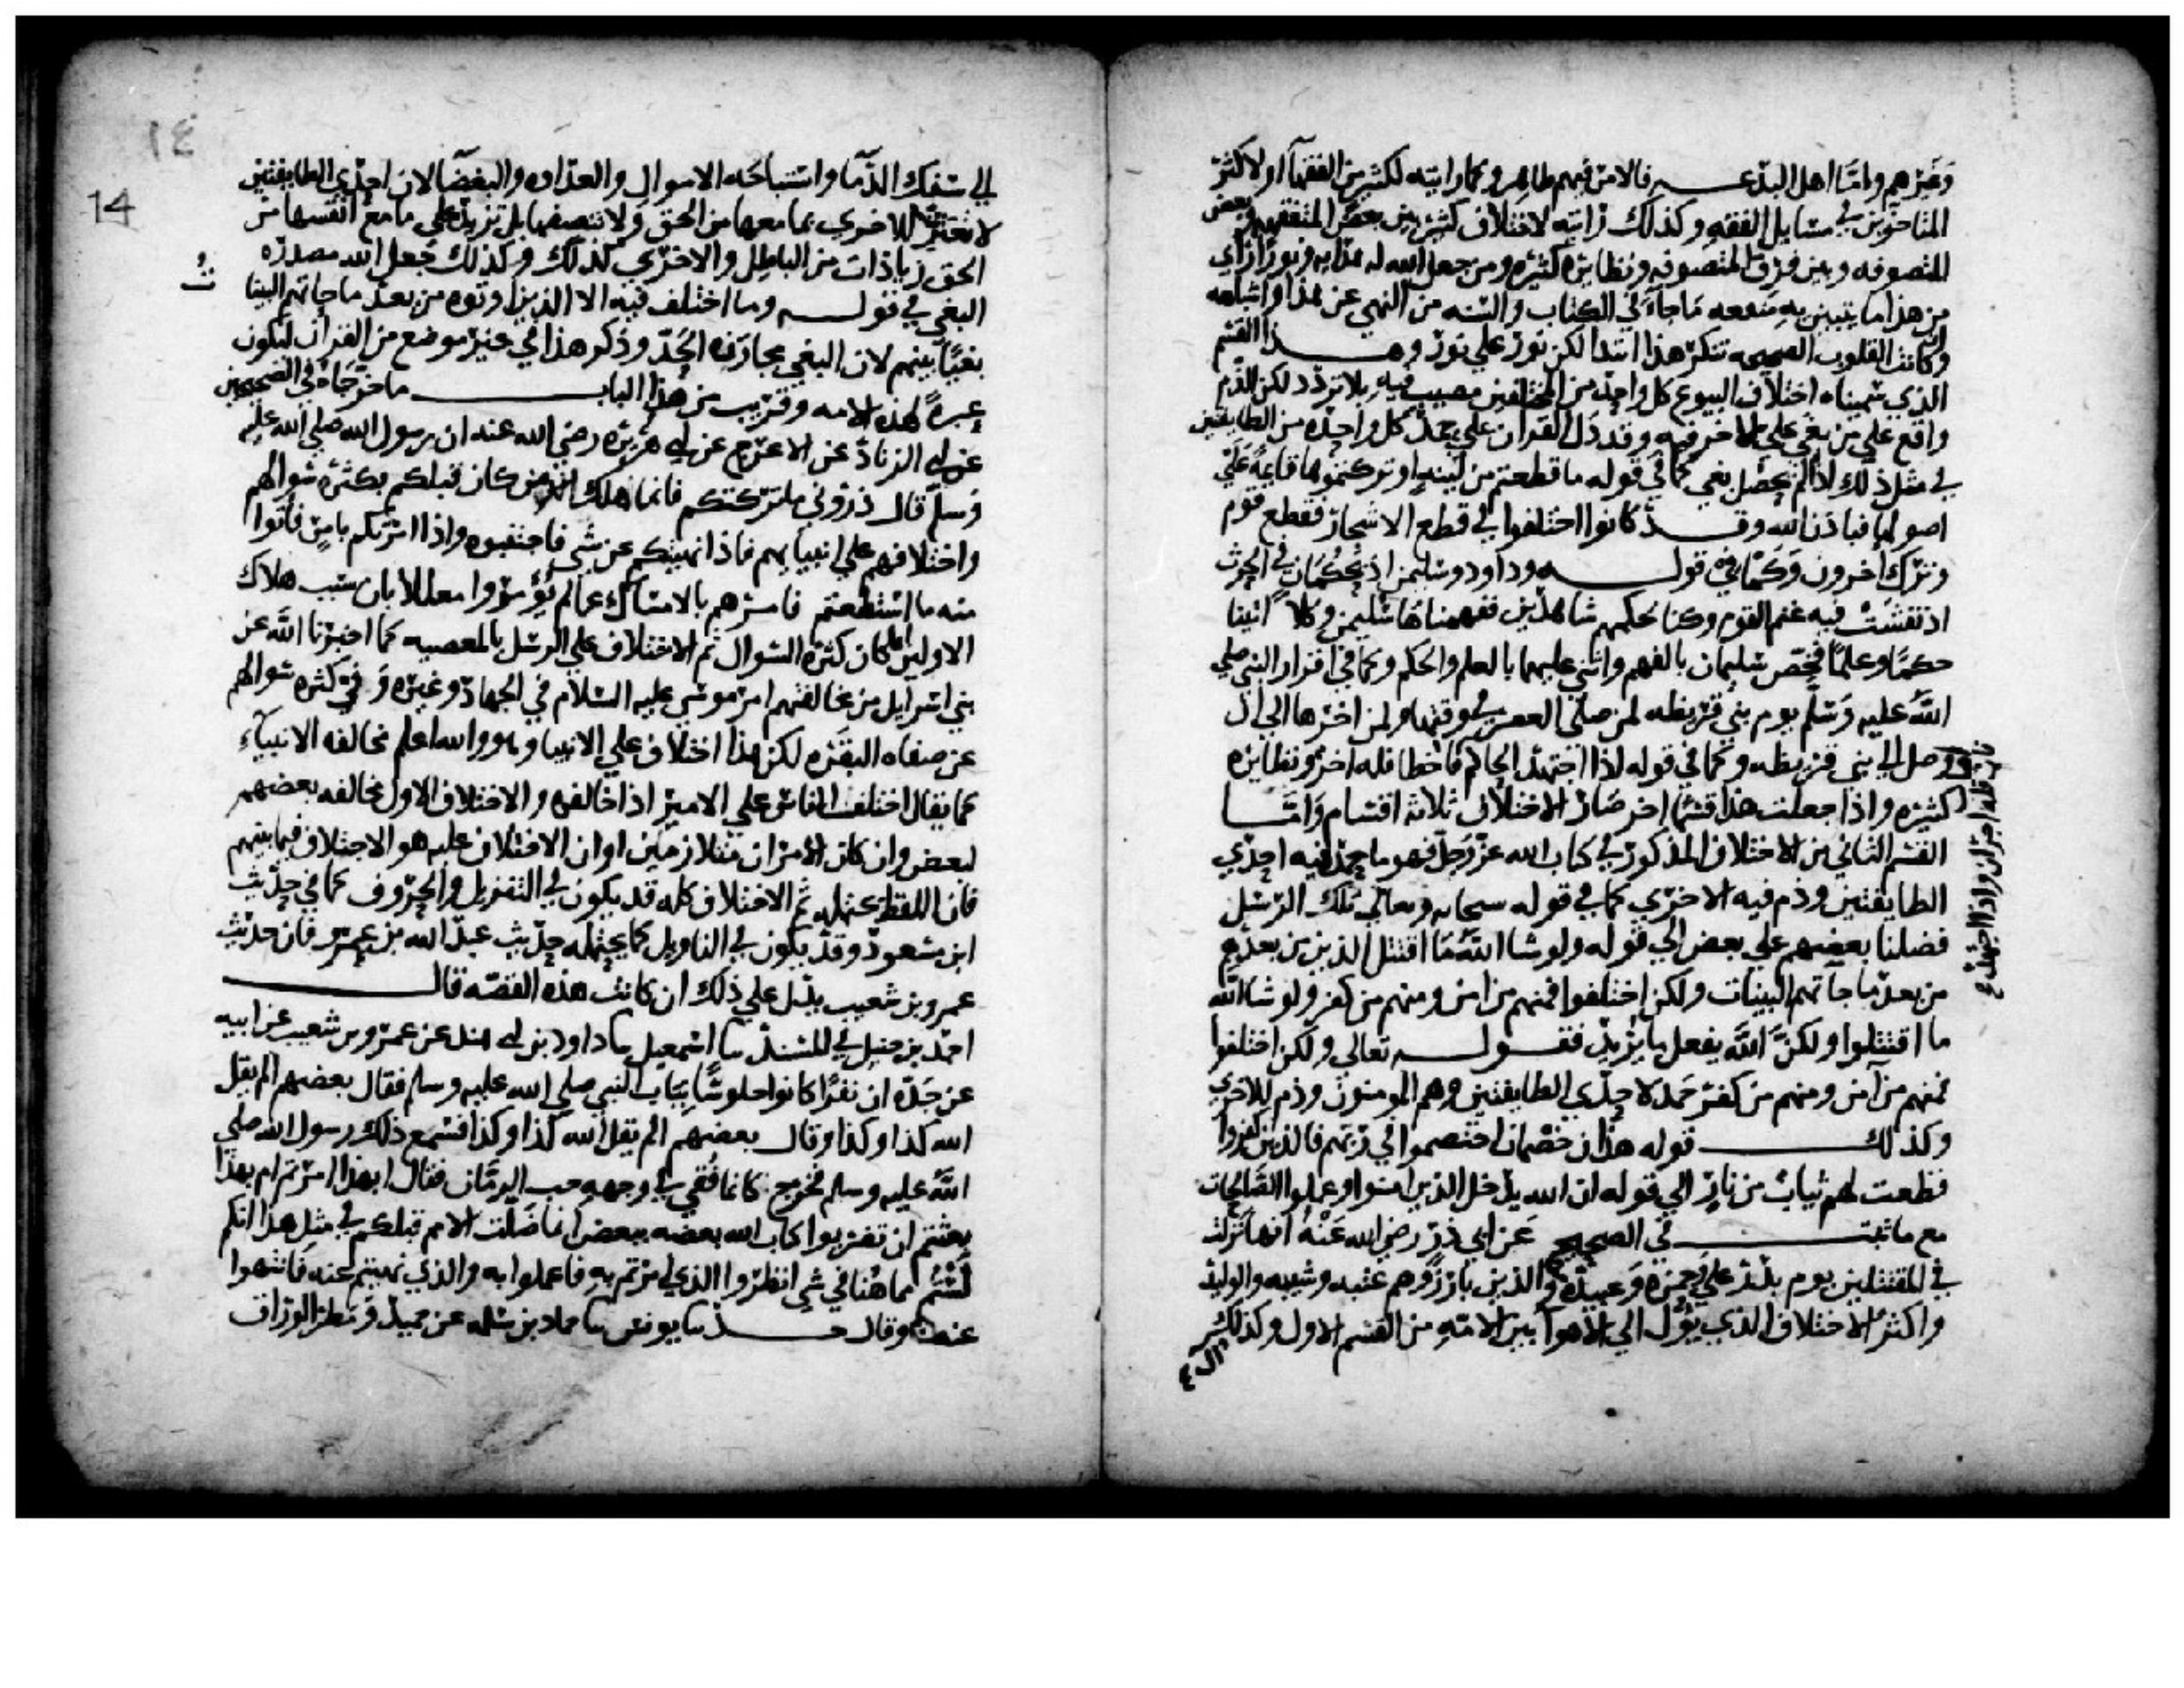 وغيرهم واما اهل البدع فالامر فيهم ظاهر وكما رايته لكثير من الفقهآ او لاكثر
المتاخرين في مسايل الفقه وكذلك رايته لاختلاف كثير بين بعض المتفقهه وبعض
المتصوفه وبين فرق المتصوفه ونظايره كثيره ومن جعل الله له هدايه ونورا راي
من هذا ما يتبين به منفعه ما جاء في الكتاب والسنه من النهي عن هذا واشباهه
وان كانت القلوب الصحيحه تنكر هذا ابتدا لكن نور علي نور وهذا القسم
الذي سميناه اختلاف التنوع كل واحد من المختلفين مصيب فيه بلا تردد لكن الذم
واقع علي من بغي علي الاخر فيه وقد دل القران علي حمد كل واحده من الطايفتين
في مثل ذلك اذا لم يحصل بغي كما في قوله ما قطعتم من لينه او تركتموها قايمة علي
اصولها فباذن الله وقد كانوا اختلفوا في قطع الاشجار فقطع قوم
وترك اخرون وكما في قوله وداود وسليمن اذ يحكمان في الحرث
اذ نفشت فيه غنم القوم وكنا لحكمهم شاهدين ففهمناها سليمن وكلا اتينا
حكما وعلما فخص سليمان بالفهم واثني عليهما بالعلم والحكم وكما في اقرار النبي صلي
الله عليه وسلم يوم بني قريظه لمن صلي العصر في وقتها ولمن اخرها الي ان
وصل الي بني قريظه وكما في قوله اذا اجتهد الحاكم فاخطا فله اجر ونظايره
كثيره واذا جعلت هذا قسما اخر صار الاختلاف ثلاثه اقسام واما
القسم الثاني من الاختلاف المذكور في كتاب الله عز وجل فهو ما حمد فيه احدي
الطايفتين وذم فيه الاخري كما في قوله سبحانه وتعالي تلك الرسل
فضلنا بعضهم علي بعض الي قوله ولو شا الله ما اقتتل الذين من بعدهم
من بعد ما جآتهم البينات ولكن اختلفوا فمنهم من امن ومنهم من كفر ولو شا الله
ما اقتتلوا ولكن الله يفعل ما يريد فقوله تعالي ولكن اختلفوا
فمنهم من آمن ومنهم من كفر حمد لاحدي الطايفتين وهم المومنون وذم للاخري
وكذلك قوله هذان خصمان اختصموا في ربهم فالذين كفروا
قطعت لهم ثياب من نار الي قوله ان الله يدخل الذين امنوا وعملوا الصالحات
مع ما ثبت في الصحيح عن ابي ذر رضي الله عنه انها نزلت
في المقتتلين يوم بدر علي وحمزه وعبيده والذين بارزوهم عتبه وشيبه والوليد
واكثر الاختلاف الذي يؤل الي الاهوآ بين الامه من القسم الاول وكذلك
فله اجران واذا اجتهد
الي سفك الدمآ واستباحه الاموال والعداوه والبغضا لان احدي الطايفتين
لا تعترف للاخري بما معها من الحق ولا تنصفها بل تزيد علي ما مع انفسها من
الحق زيادات من الباطل والاخري كذلك وكذلك جعل الله مصدره
البغي في قوله وما اختلف فيه الا الذين اوتوه من بعد ما جاتهم البينا
ت
بغيا بينهم لان البغي مجاوزه الحد وذكر هذا في غير موضع من القران ليكون
عبرة لهذه الامه وقريب من هذا الباب ما خرجاه في الصحيحين
عن ابي الزناد عن الاعرج عن ابي هريره رضي الله عنه ان رسول الله صلي الله عليه
وسلم قال ذروني ما تركتكم فانما هلك من كان قبلكم بكثره سوالهم
واختلافهم علي انبيايهم فاذا نهيتكم عن شي فاجتنبوه واذا امرتكم بامر فاتوا
منه ما استطعتم فامرهم بالامساك عما لم يؤمروا معللا بان سبب هلاك
الاولين انما كان كثره السوال ثم الاختلاف علي الرسل بالمعصيه كما اخبرنا الله عن
بني اسرايل من مخالفتهم امر موسي عليه السلام في الجهاد وغيره وفي كثره سوالهم
عن صفاه البقره لكن هذا اختلاف علي الانبيا وهو والله اعلم مخالفه الانبيآء
كما يقال اختلف الناس علي الامير اذا خالفوه والاختلاف الاول مخالفه بعضهم
لبعض وان كان الامران متلازمين او ان الاختلاف عليه هو الاختلاف فيما بينهم
فان اللفظ يحتمله ثم الاختلاف كله قد يكون في التنزيل والحروف كما في حديث
ابن مسعود وقد يكون في التاويل كما يحتمله حديث عبد الله بن عمرو فان حديث
عمرو بن شعيب يدل علي ذلك ان كانت هذه القصه قال
احمد بن حنبل في المسند ثنا اسمعيل ثنا داود بن ابي هند عن عمرو بن شعيب عن ابيه
عن جده ان نفرا كانوا جلوسا بباب النبي صلي الله عليه وسلم فقال بعضهم الم يقل
الله كذا وكذا وقال بعضهم الم يقل الله كذا وكذا فسمع ذلك رسول الله صلي
الله عليه وسلم فخرج كانما فقي في وجهه حب الرمان فقال ابهذا امرتم ام بهذا
بعثتم ان تضربوا كتاب الله بعضه ببعض انما ضلت الامم قبلكم في مثل هذا انكم
لستم مما هنا في شي انظروا الذي امرتم به فاعملوا به والذي نهيتم عنه فانتهوا
عنه وقال حدثنا يونس ثنا حماد بن سلمه عن حميد ومطر الوراق
14
١٤